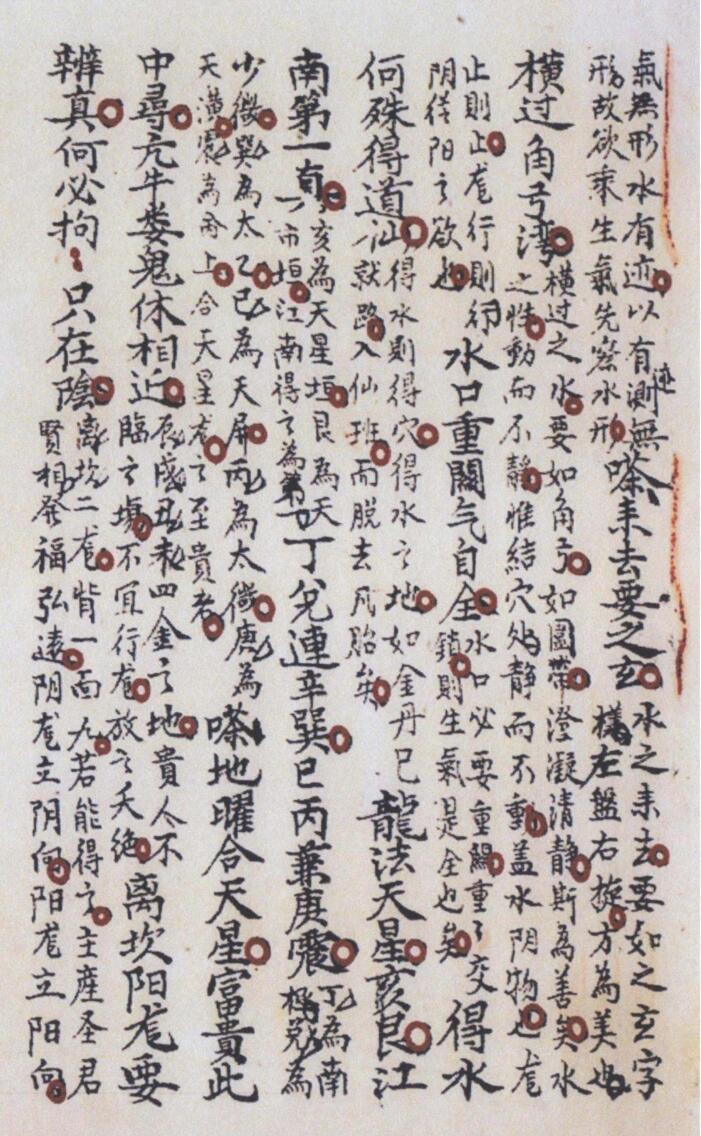 氣無形水有迹以有測無
形故欲乘生氣先察水形迹
嗏耒去要之玄
水之耒去要如之玄字
樣左盤右旋方為美也
橫过角弓湾
橫过之水要如角弓如圍帶澄凝清静斯為善矣水
之性動而不静惟結穴处静而不動盖水阴物也龙
止則止龙行則行
阴待阳之欲也
水口重關气自全
水口必要重關重〻交
鎖則生氣是全也矣
得水
何殊得道仙
得水則得穴得水之地如金丹已
就路入仙班而脱去凡胎矣
龍法天星亥艮江
南第一有
亥為天星垣艮為天
市垣江南得之為第一
丁兌連辛巽巳丙兼庚震
丁為南
極兌為
少微巽為太乙巳為天屏丙為太微庚為
天潢震為帝上合天星龙之至貴者
嗏地曜合天星富貴此
中尋亢牛娄鬼休相近
辰戌丑未四金之地貴人不
臨之墳不宜行龙放之夭绝
离坎阳龙要
辨真何必拘〻只在陰
离坎二龙背一面九若能得之主産圣君
賢相發福弘遠阴龙立阴向阳龙立阳向